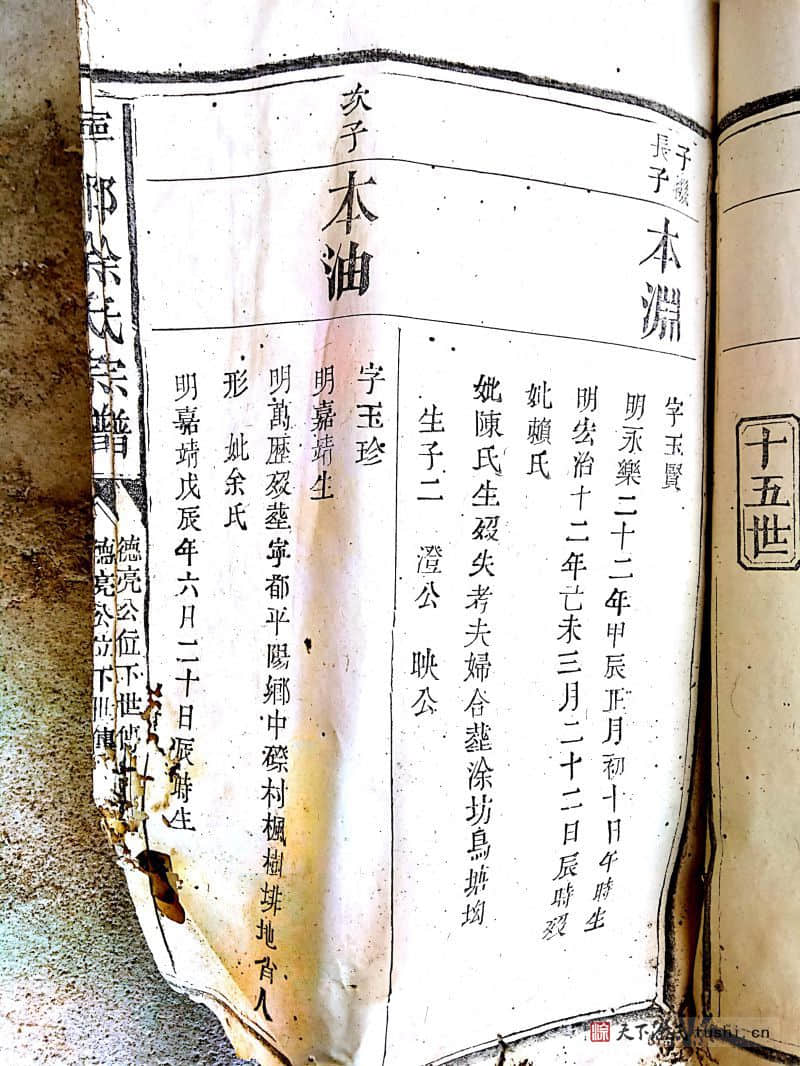 十五世
子
長子
本淵
字玉賢
明永樂二十二年甲辰正月初十日午時生
明宏治十二年己未三月二十二日辰時歿
妣賴氏
妣陳氏生歿失考夫婦合塟涂坊烏塘坳
生子二 澄公 映公
次子
本油
字玉珍
明嘉靖生
明萬歷歿塟寧都平陽鄉中磜村楓樹排地肖人
形 妣余氏
明嘉靖戊辰年六月二十日辰時生
涂氏宗譜
德亮公位下世傳
德亮公位下世傳
天下涂氏 tushi.cn